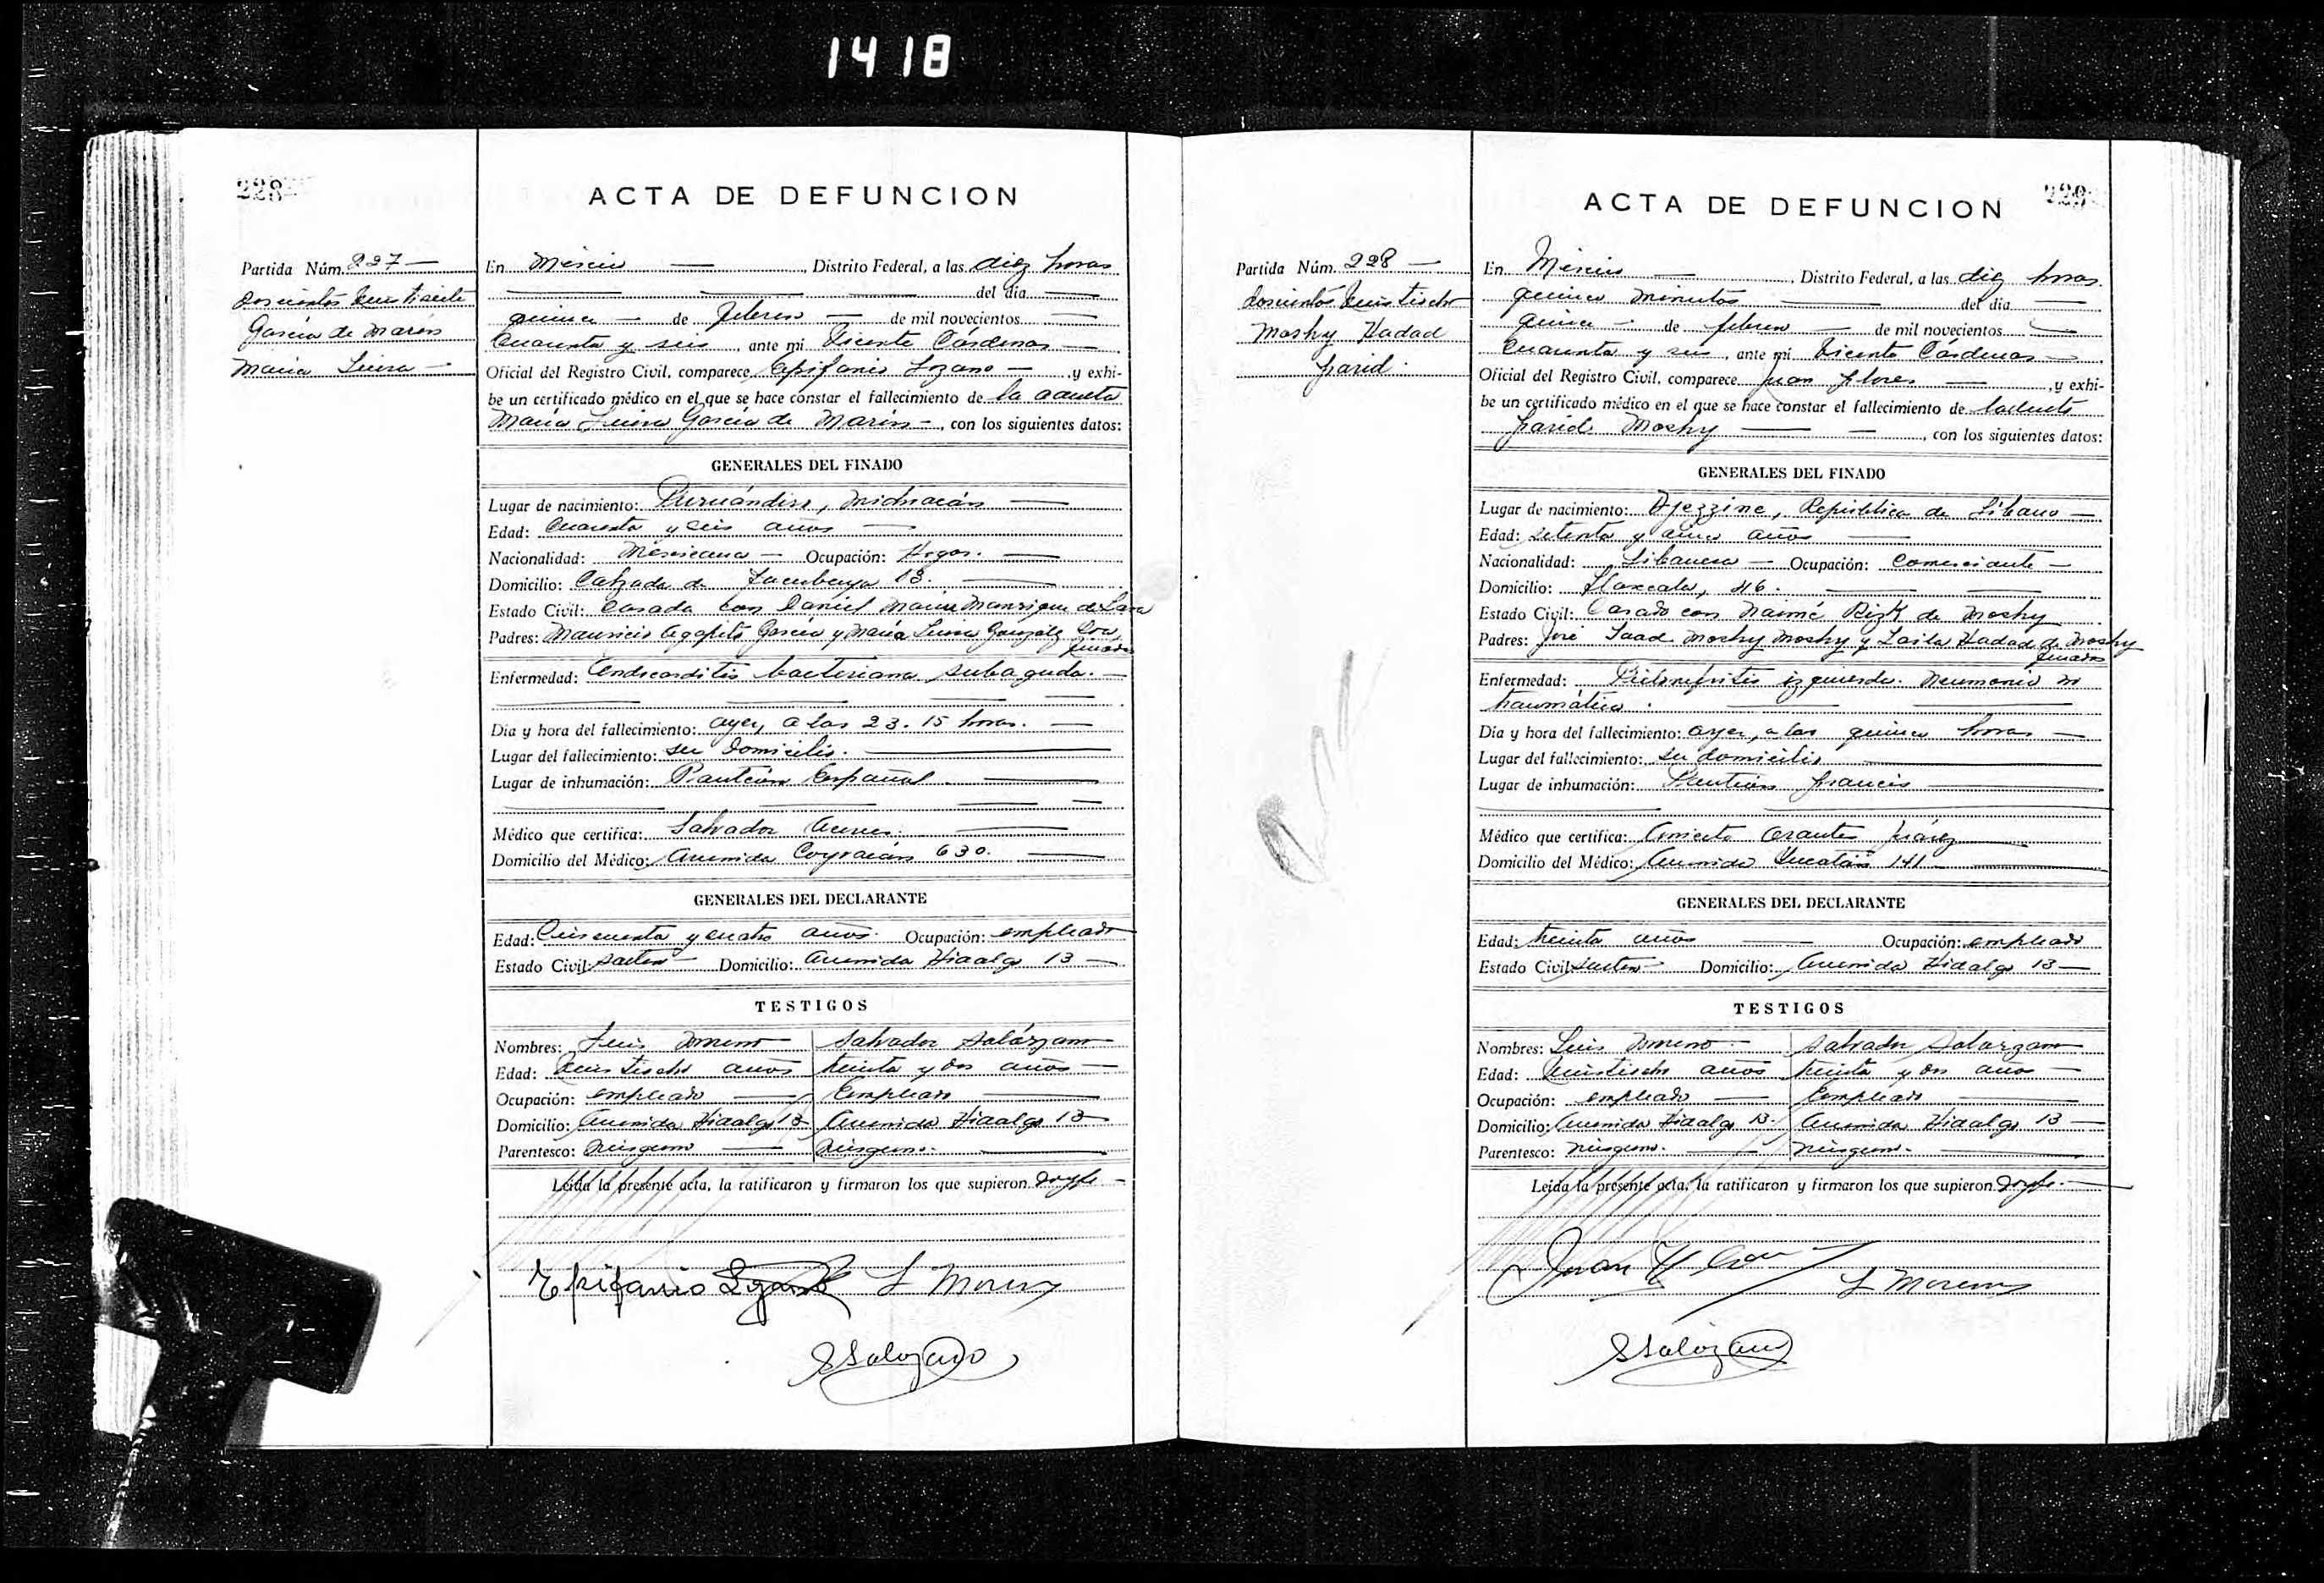 1418
228
ACTA DE DEFUNCION
Partida Núm. 227
doscientos veintisiete
García de Marín
María Luisa
En México, Distrito Federal, a las diez horas
del día
quince de febrero de mil novecientos
cuarenta y seis, ante mi Vicente Cárdenas
Oficial del Registro Civil, comparece Epifanio Lozano, y exhi-
be un certificado médico en el que se hace constar el fallecimiento de la adulta
María Luisa García de Marín, con los siguientes datos:
GENERALES DEL FINADO
Lugar de nacimiento: Puruándiro, Michoacán
Edad: Cuarenta y seis años
Nacionalidad: Mexicana Ocupación: Hogar.
Domicilio: Calzada de Tacubaya 18.
Estado Civil: Casada con Daniel Marín Manrique de Lara
Padres: Mauricio Agapito García y María Luisa González
finados
Enfermedad: Endocarditis bacteriana subaguda.
Día y hora del fallecimiento: ayer, a las 23.15 horas.
Lugar del fallecimiento: su domicilio.
Lugar de inhumación: Panteón Español
Médico que certifica: Salvador
Domicilio del Médico: Avenida Coyoacán 630.
GENERALES DEL DECLARANTE
Edad: Cincuenta y cuatro años. Ocupación: empleado
Estado Civil: soltero Domicilio: Avenida Hidalgo 13
TESTIGOS
Nombres: Luis Moreno Salvador Solórzano
Edad: Veintiocho años treinta y dos años
Ocupación: empleado Empleado
Domicilio: Avenida Hidalgo 13 Avenida Hidalgo 13
Parentesco: Ninguno Ninguno.
Leída la presente acta, la ratificaron y firmaron los que supieron. Doy fe
Epifanio Lozano L Moreno
S Solorzano
229
ACTA DE DEFUNCION
Partida Núm. 228
doscientos veintiocho
Moshy Hadad
Farid.
En México, Distrito Federal, a las diez horas
quince minutos del día
quince de febrero de mil novecientos
cuarenta y seis, ante mi Vicente Cárdenas
Oficial del Registro Civil, comparece Juan Flores, y exhi-
be un certificado médico en el que se hace constar el fallecimiento de
Farid Moshy, con los siguientes datos:
GENERALES DEL FINADO
Lugar de nacimiento: Djezzine, República de Líbano
Edad: setenta y cinco años
Nacionalidad: Libanesa Ocupación: Comerciante
Domicilio: Tlaxcala, 46.
Estado Civil: Casado con Naimé Rizk de Moshy
Padres: José Saad Moshy Moshy y Laila Hadad de Moshy
finados
Enfermedad: Pielonefritis izquierda. Neumonía no
traumática.
Día y hora del fallecimiento: ayer, a las quince horas
Lugar del fallecimiento: su domicilio
Lugar de inhumación: Panteón Francés
Médico que certifica: Aniceto Orantes Juárez
Domicilio del Médico: Avenida Yucatán 141
GENERALES DEL DECLARANTE
Edad: treinta años Ocupación: empleado
Estado Civil: soltero Domicilio: Avenida Hidalgo 13
TESTIGOS
Nombres: Luis Moreno Salvador Solórzano
Edad: Veintiocho años treinta y dos años
Ocupación: empleado Empleado
Domicilio: Avenida Hidalgo 13. Avenida Hidalgo 13
Parentesco: Ninguno. Ninguno.
Leída la presente acta, la ratificaron y firmaron los que supieron. Doy fe.
Juan
L Moreno
S Solorzano